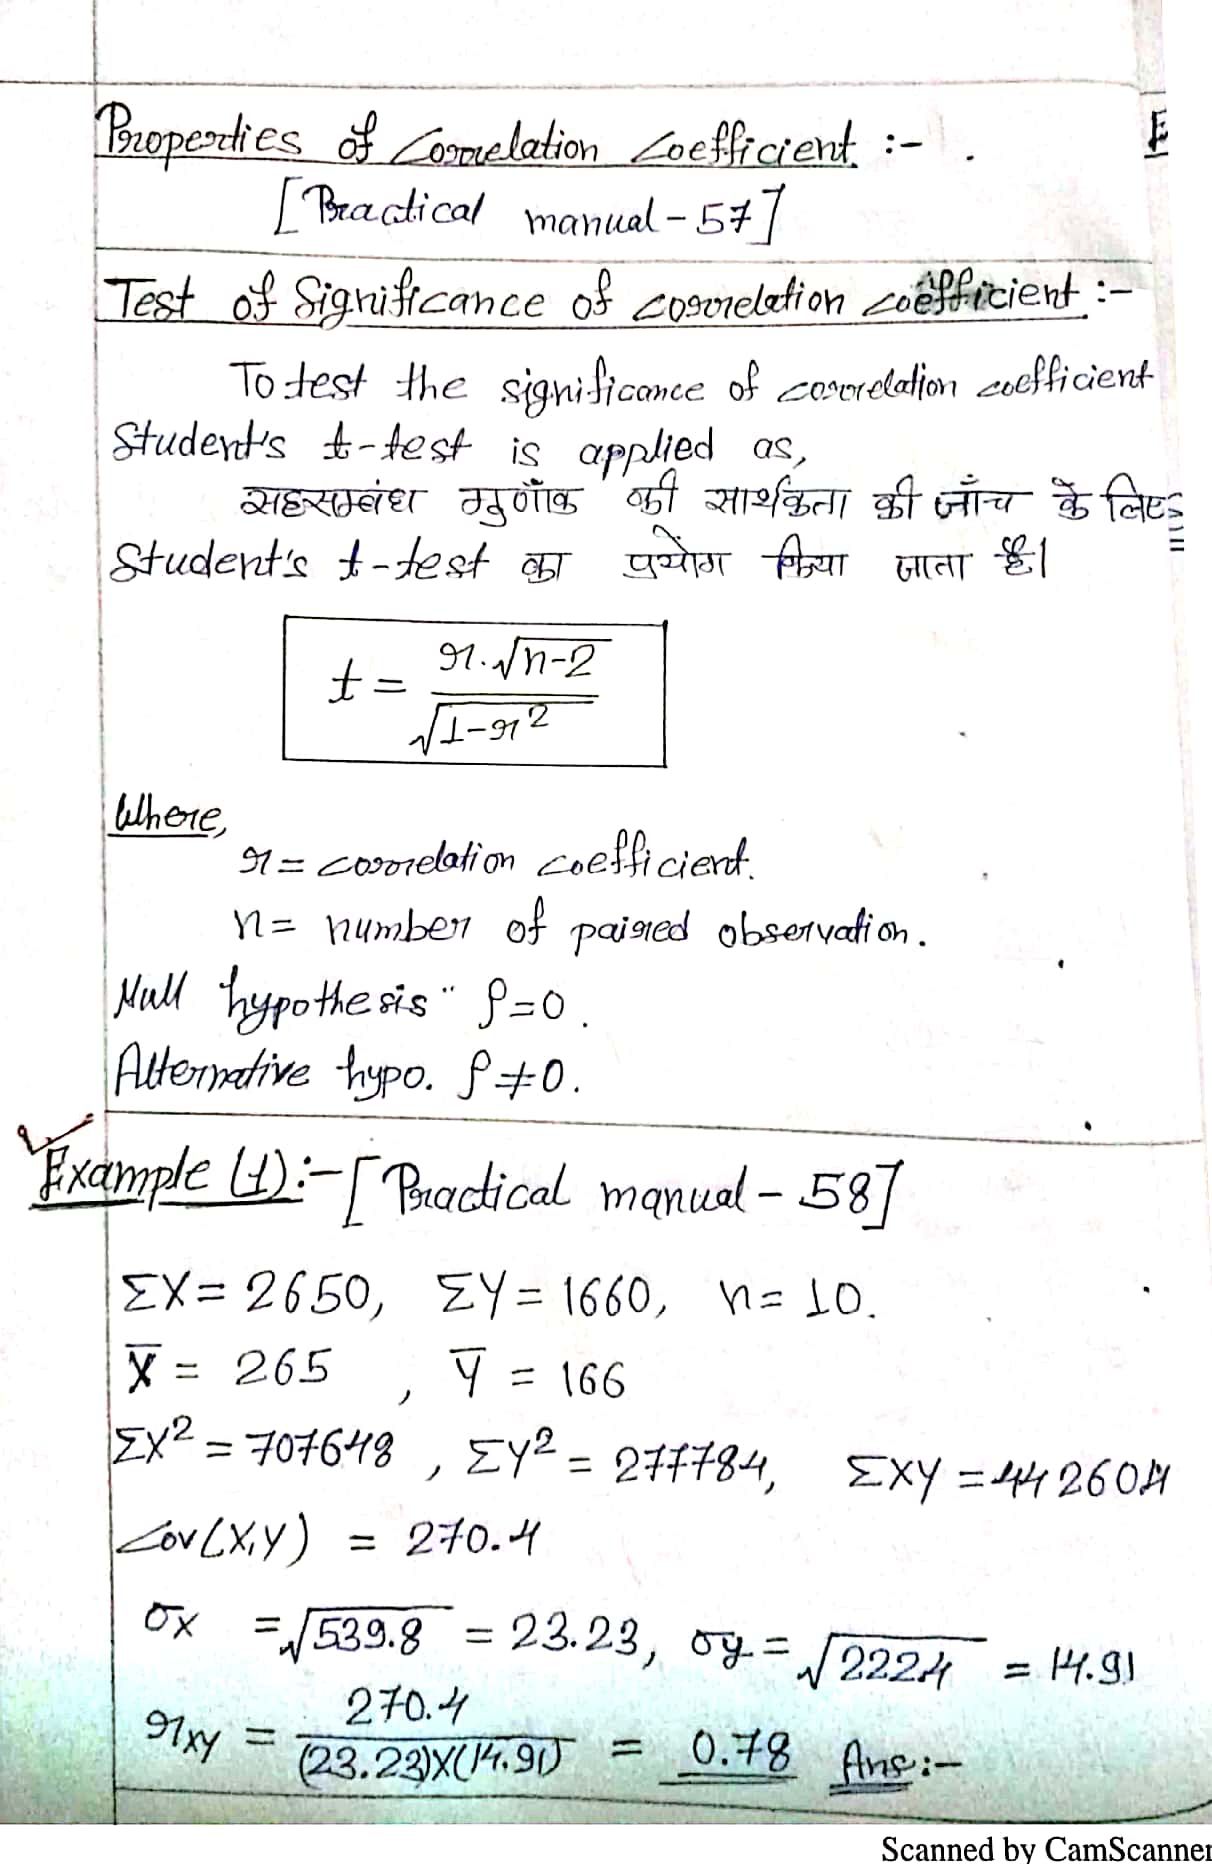 Properties of Correlation Coefficient :-
[Practical manual - 57]
Test of Significance of correlation coefficient :-
To test the significance of correlation coefficient
Student's t-test is applied as,
सहसम्बंध गुणाँक की सार्थकता की जाँच के लिए
Student's t-test का प्रयोग किया जाता है।
t = r.√n-2 / √1-r²
Where,
r = correlation coefficient.
n = number of paired observation.
Null hypothesis ρ=0.
Alternative hypo. ρ≠0.
Example (1):- [Practical manual - 58]
ΣX = 2650, ΣY = 1660, n = 10.
X̅ = 265, Y̅ = 166
ΣX² = 707648, ΣY² = 277784, ΣXY = 442604
Cov(X,Y) = 270.4
σx = √539.8 = 23.23, σy = √222.4 = 14.91
rxy = 270.4 / (23.23)X(14.91) = 0.78 Ans:-
Scanned by CamScanner